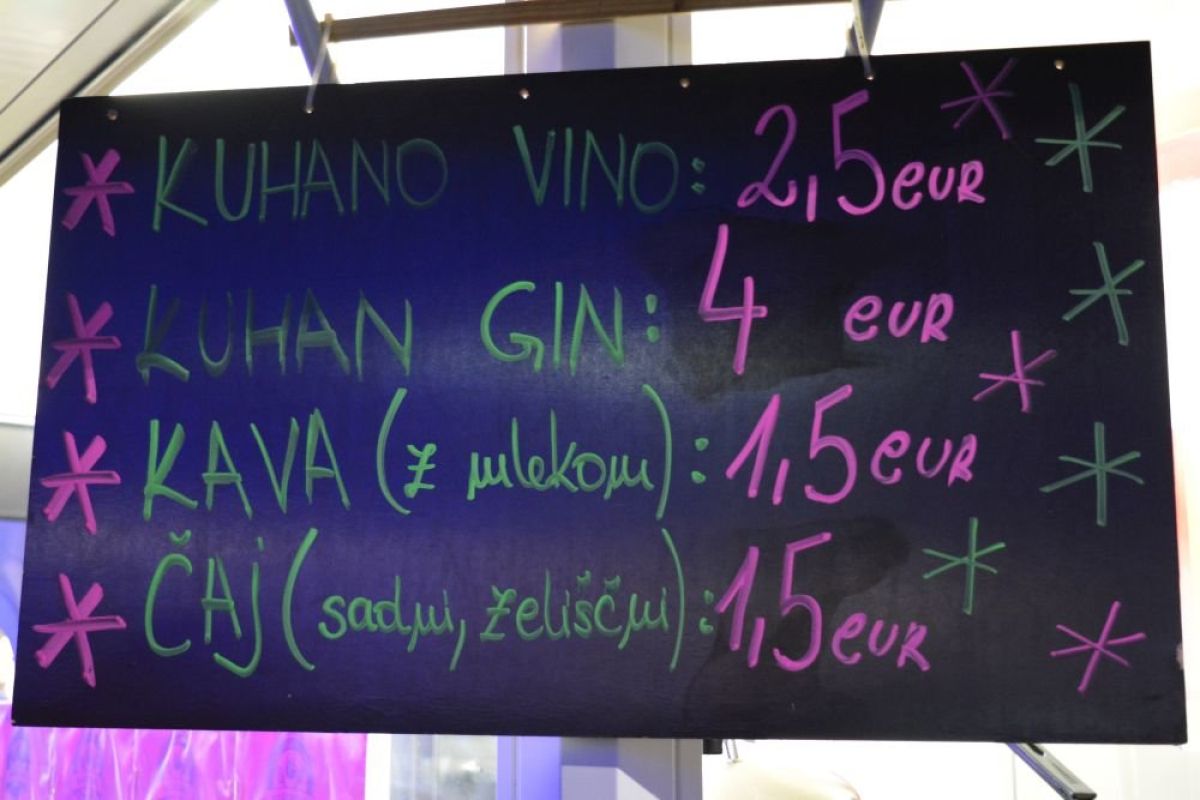 KUHANO VINO: 2,5 eur
KUHAN GIN: 4 eur
KAVA (z mlekom): 1,5 eur
ČAJ (sadni, zeliščni): 1,5 eur